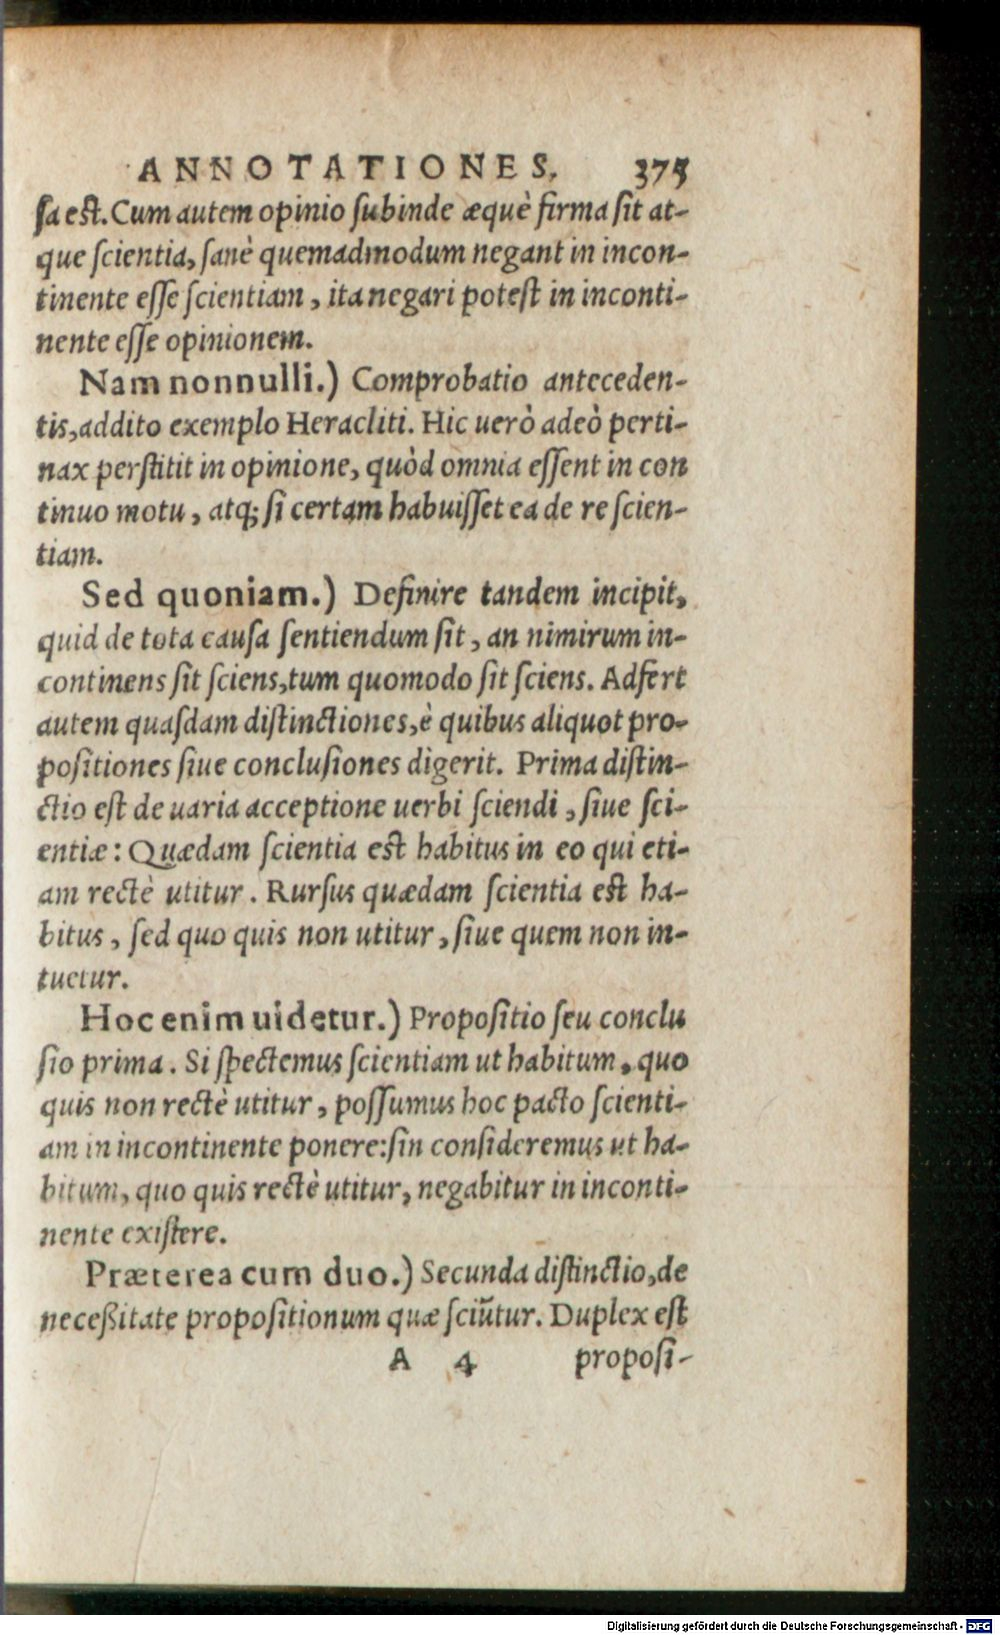 ANNOTATIONES. 375
ſa eſt. Cum autem opinio ſubinde æquè firma ſit at-
que ſcientia, ſanè quemadmodum negant in incon-
tinente eſſe ſcientiam, ita negari poteſt in inconti-
nente eſſe opinionem.
Nam nonnulli.) Comprobatio anteceden-
tis, addito exemplo Heracliti. Hic uerò adeò perti-
nax perſtitit in opinione, quòd omnia eſſent in con
tinuo motu, atq; ſi certam habuiſſet ea de re ſcien-
tiam.
Sed quoniam.) Definire tandem incipit,
quid de tota cauſa ſentiendum ſit, an nimirum in-
continens ſit ſciens, tum quomodo ſit ſciens. Adfert
autem quaſdam diſtinctiones, è quibus aliquot pro-
poſitiones ſiue concluſiones digerit. Prima diſtin-
ctio eſt de uaria acceptione uerbi ſciendi, ſiue ſci-
entiæ: Quædam ſcientia eſt habitus in eo qui eti-
am rectè utitur. Rurſus quædam ſcientia eſt ha-
bitus, ſed quo quis non utitur, ſiue quem non in-
tuetur.
Hoc enim uidetur.) Propoſitio ſeu conclu
ſio prima. Si ſpectemus ſcientiam ut habitum, quo
quis non rectè utitur, poſſumus hoc pacto ſcienti-
am in incontinente ponere: ſin conſideremus ut ha-
bitum, quo quis rectè utitur, negabitur in inconti-
nente exiſtere.
Præterea cum duo.) Secunda diſtinctio, de
neceßitate propoſitionum quæ ſciũtur. Duplex eſt
A 4 propoſi-
Digitalisierung gefördert durch die Deutsche Forschungsgemeinschaft - DFG